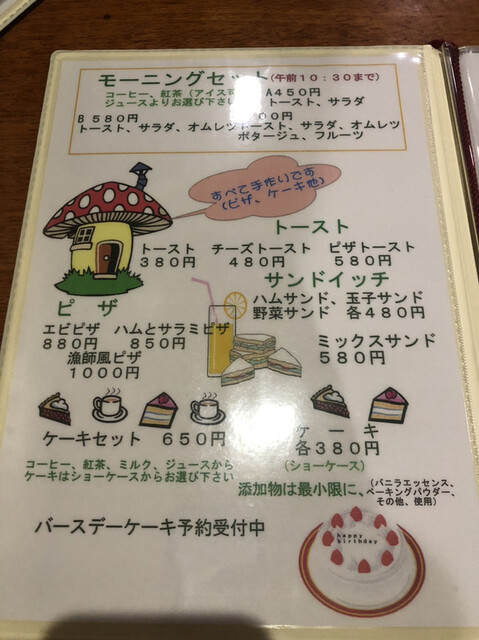 モーニングセット(午前10:30まで)
コーヒー、紅茶(アイス可 A450円
ジュースよりお選び下さい トースト、サラダ
B580円 00円
トースト、サラダ、オムレツ トースト、サラダ、オムレツ
ポタージュ、フルーツ
すべて手作いです
(ピザ、ケーキ他)
トースト
トースト チーズトースト ピザトースト
380円 480円 580円
サンドイッチ
ハムサンド、玉子サンド
野菜サンド 各480円
ミックスサンド
580円
ピザ
エビピザ ハムとサラミピザ
880円 850円
漁師風ピザ
1000円
ケーキセット 650円
コーヒー、紅茶、ミルク、ジュースから
ケーキはショーケースからお選び下さい
ケーキ
各380円
(ショーケース)
添加物は最小限に、(バニラエッセンス、
ベーキングパウダー、
その他、使用)
バースデーケーキ予約受付中
happy
birthday